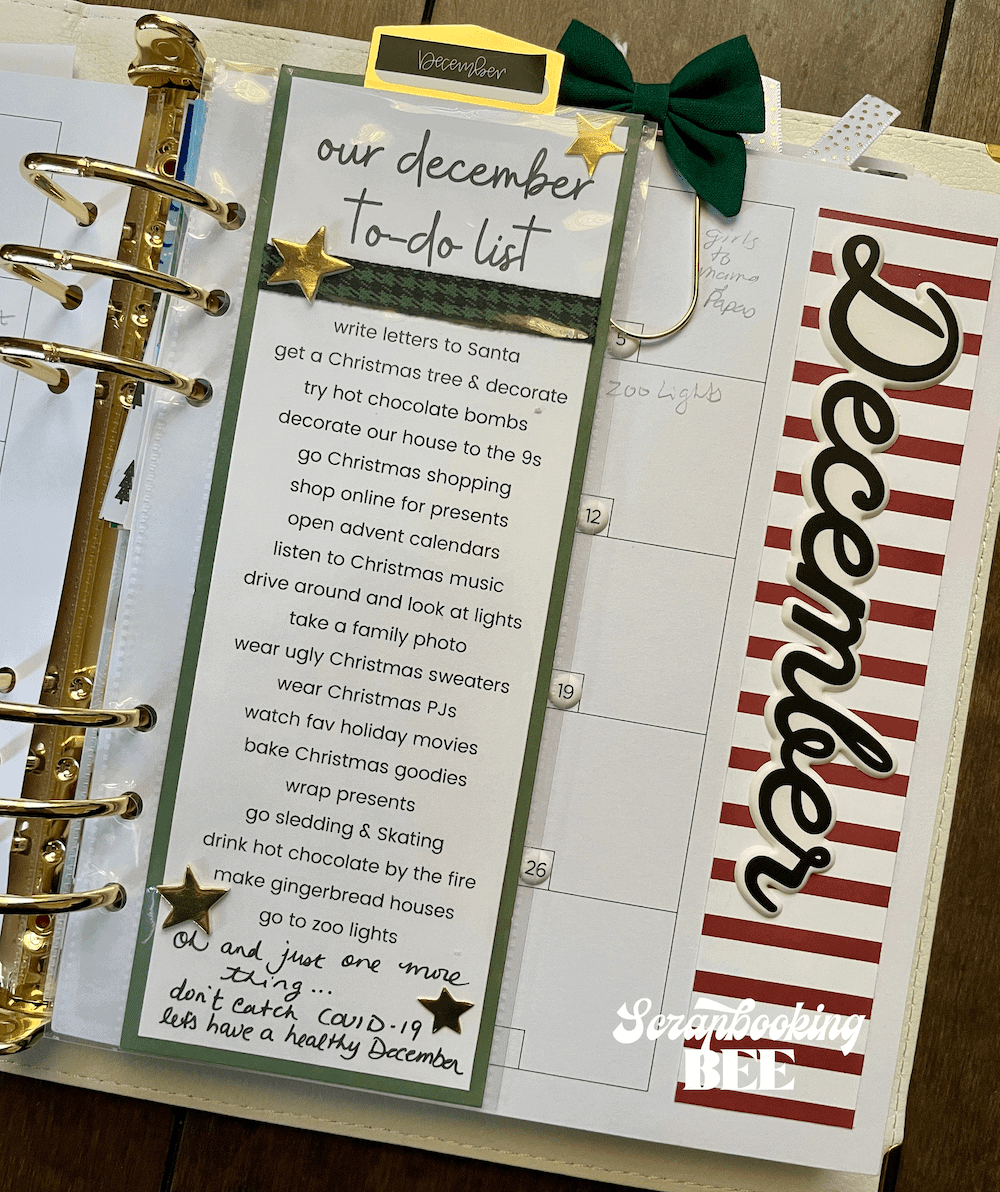 December
our december
to-do list
write letters to Santa
get a Christmas tree & decorate
try hot chocolate bombs
decorate our house to the 9s
go Christmas shopping
shop online for presents
open advent calendars
listen to Christmas music
drive around and look at lights
take a family photo
wear ugly Christmas sweaters
wear Christmas PJs
watch fav holiday movies
bake Christmas goodies
wrap presents
go sledding & Skating
drink hot chocolate by the fire
make gingerbread houses
go to zoo lights
oh and just one more
thing...
don't catch COVID-19
lets have a healthy December
girls
to
mama
Papas
5
zoo Lights
12
19
26
December
Scrapbooking
BEE